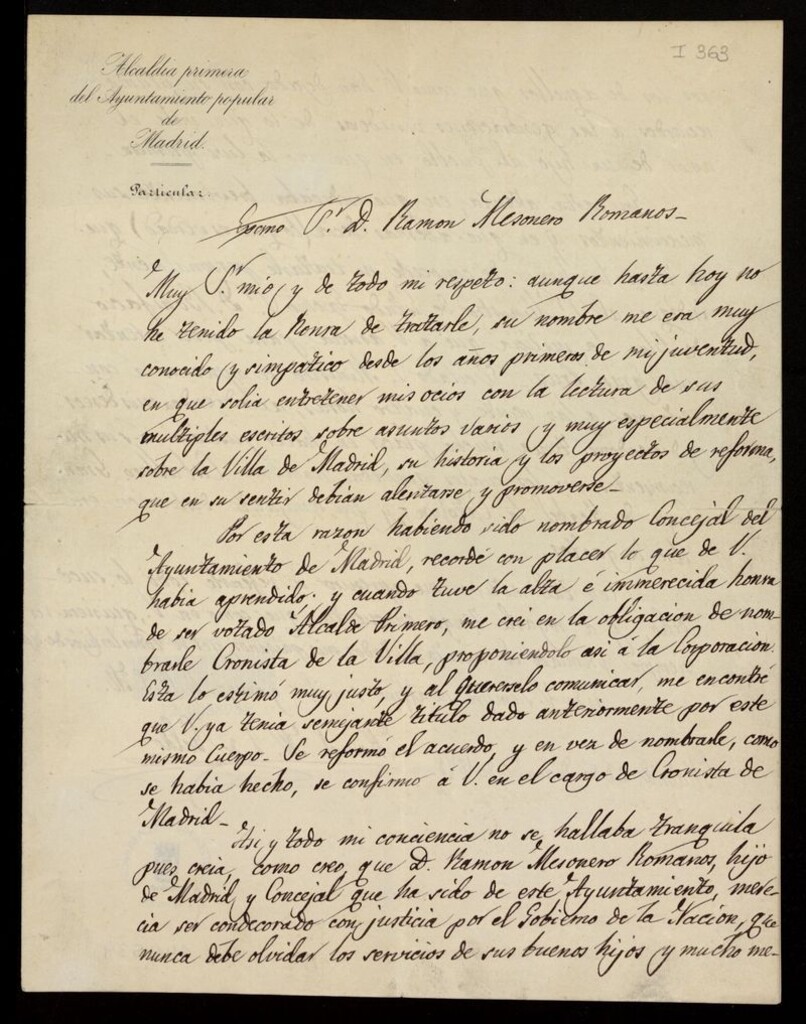 I 363
Alcaldía primera
del Ayuntamiento popular
de
Madrid.
Particular.
Excmo Sr. D. Ramon Mesonero Romanos-
Muy Sr. mio y de todo mi respeto: aunque hasta hoy no
he tenido la honra de tratarle, su nombre me era muy
conocido y simpatico desde los años primeros de mi juventud,
en que solia entretener mis ocios con la lectura de sus
multiples escritos sobre asuntos varios y muy especialmente
sobre la Villa de Madrid, su historia y los proyectos de reforma,
que en su sentir debian alentarse y promoverse-
Por esta razon habiendo sido nombrado Concejal del
Ayuntamiento de Madrid, recordé con placer lo que de V.
habia aprendido; y cuando tuve la alta é inmerecida honra
de ser votado Alcalde Primero, me crei en la obligacion de nom-
brarle Cronista de la Villa, proponiendolo asi á la Corporacion.
Esta lo estimó muy justo, y al querérselo comunicar, me encontré
que V. ya tenia semejante titulo dado anteriormente por este
mismo Cuerpo- Se reformó el acuerdo, y en vez de nombrarle, como
se habia hecho, se confirmó á V. en el cargo de Cronista de
Madrid-
Asi y todo mi conciencia no se hallaba tranquila
pues creia, como creo, que D. Ramon Mesonero Romanos, hijo
de Madrid y Concejal que ha sido de este Ayuntamiento, mere-
cia ser condecorado con justicia por el Gobierno de la Nacion, que
nunca debe olvidar los servicios de sus buenos hijos y mucho me-